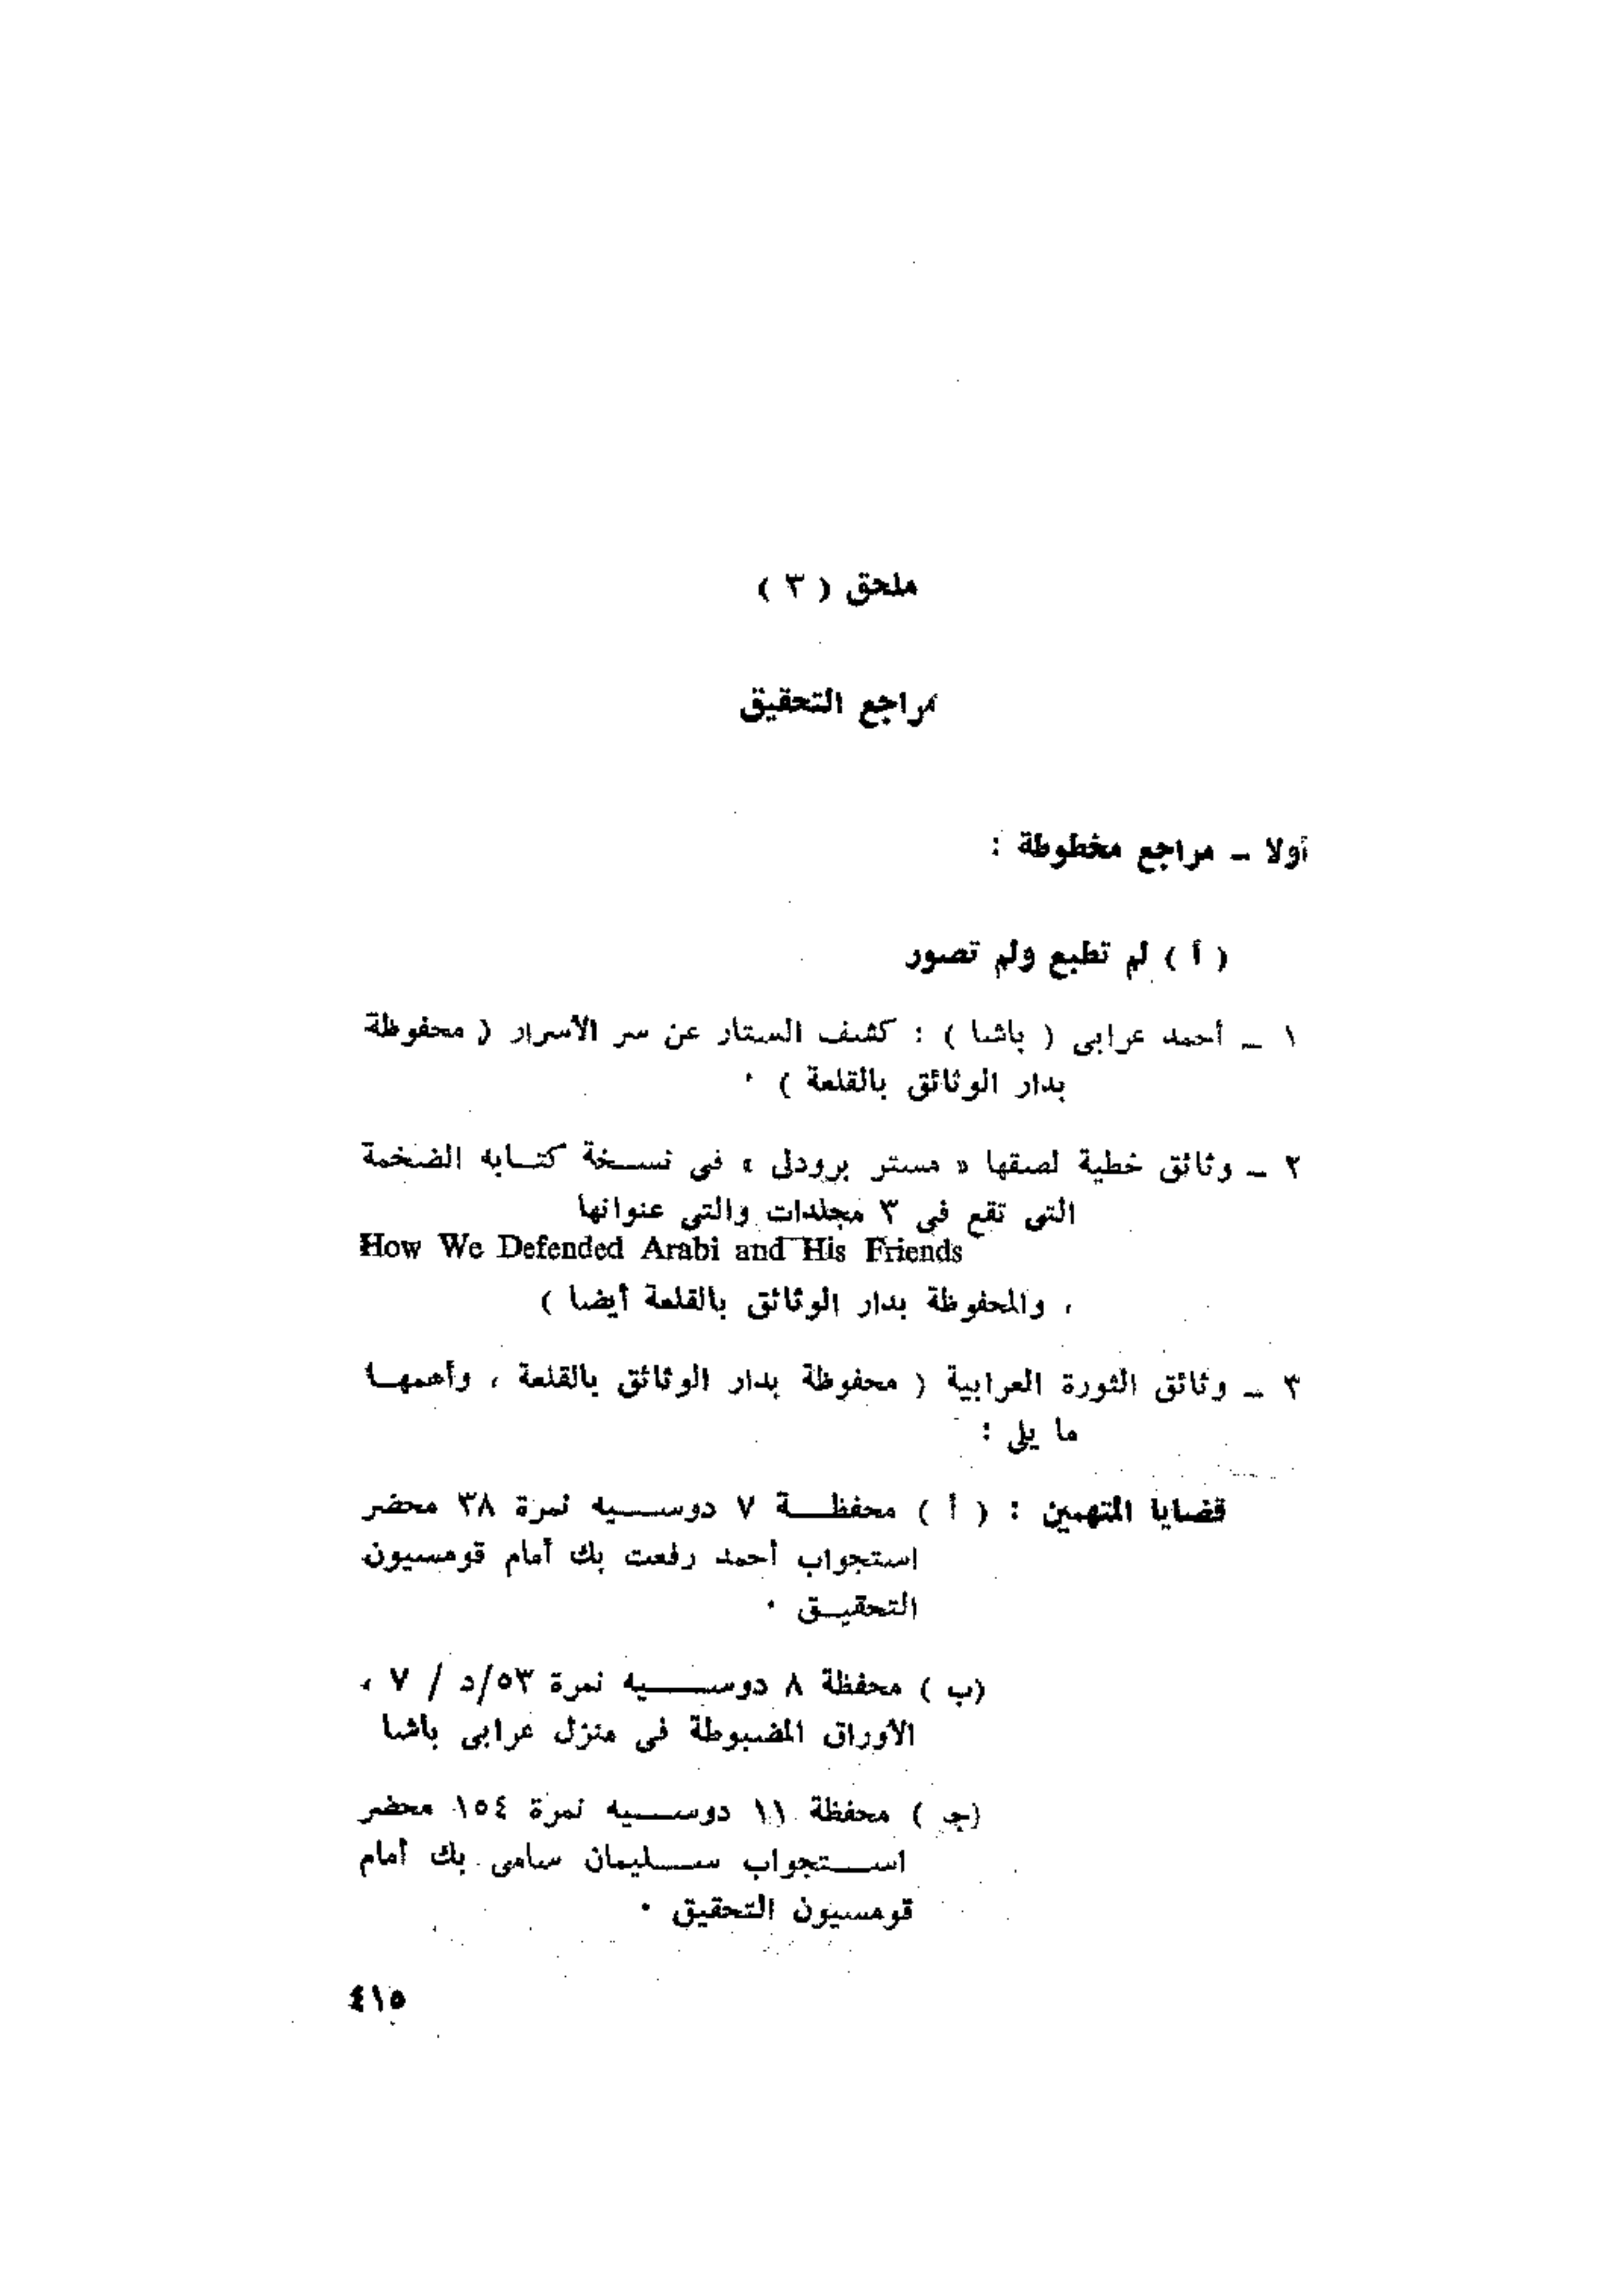 ملحق ( ٣ )
مراجع التحقيق
أولا ـ مراجع مخطوطة :
( أ ) لم تطبع ولم تصور
١ ـ أحمد عرابى ( باشا ) : كشف الستار عن سر الأسرار ( محفوظة
بدار الوثائق بالقلعة ) ٠
٢ ـ وثائق خطية لصقها « مستر برودلى » فى نسخة كتابه الضخمة
التى تقع فى ٣ مجلدات والتى عنوانها
How We Defended Arabi and His Friends
، والمحفوظة بدار الوثائق بالقلعة أيضا )
٣ ـ وثائق الثورة العرابية ( محفوظة بدار الوثائق بالقلعة ، وأهمها
ما يلى :
قضايا المتهمين : ( أ ) محفظة ٧ دوسيه نمرة ٣٨ محضر
استجواب أحمد رفعت بك أمام قومسيون
التحقيق ٠
(ب ) محفظة ٨ دوسيه نمرة ٥٣/د / ٧ ،
الأوراق المضبوطة فى منزل عرابى باشا
(جـ ) محفظة ١١ دوسيه نمرة ١٥٤ محضر
استجواب سليمان سامى بك أمام
قومسيون التحقيق ٠
٤١٥